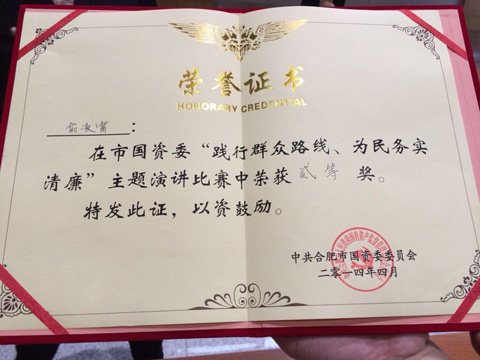 荣誉证书
HONORARY CREDENTIAL
俞凌霄：
在市国资委“践行群众路线、为民务实
清廉”主题演讲比赛中荣获贰等奖。
特发此证，以资鼓励。
中共合肥市国资委委员会
二零一四年四月